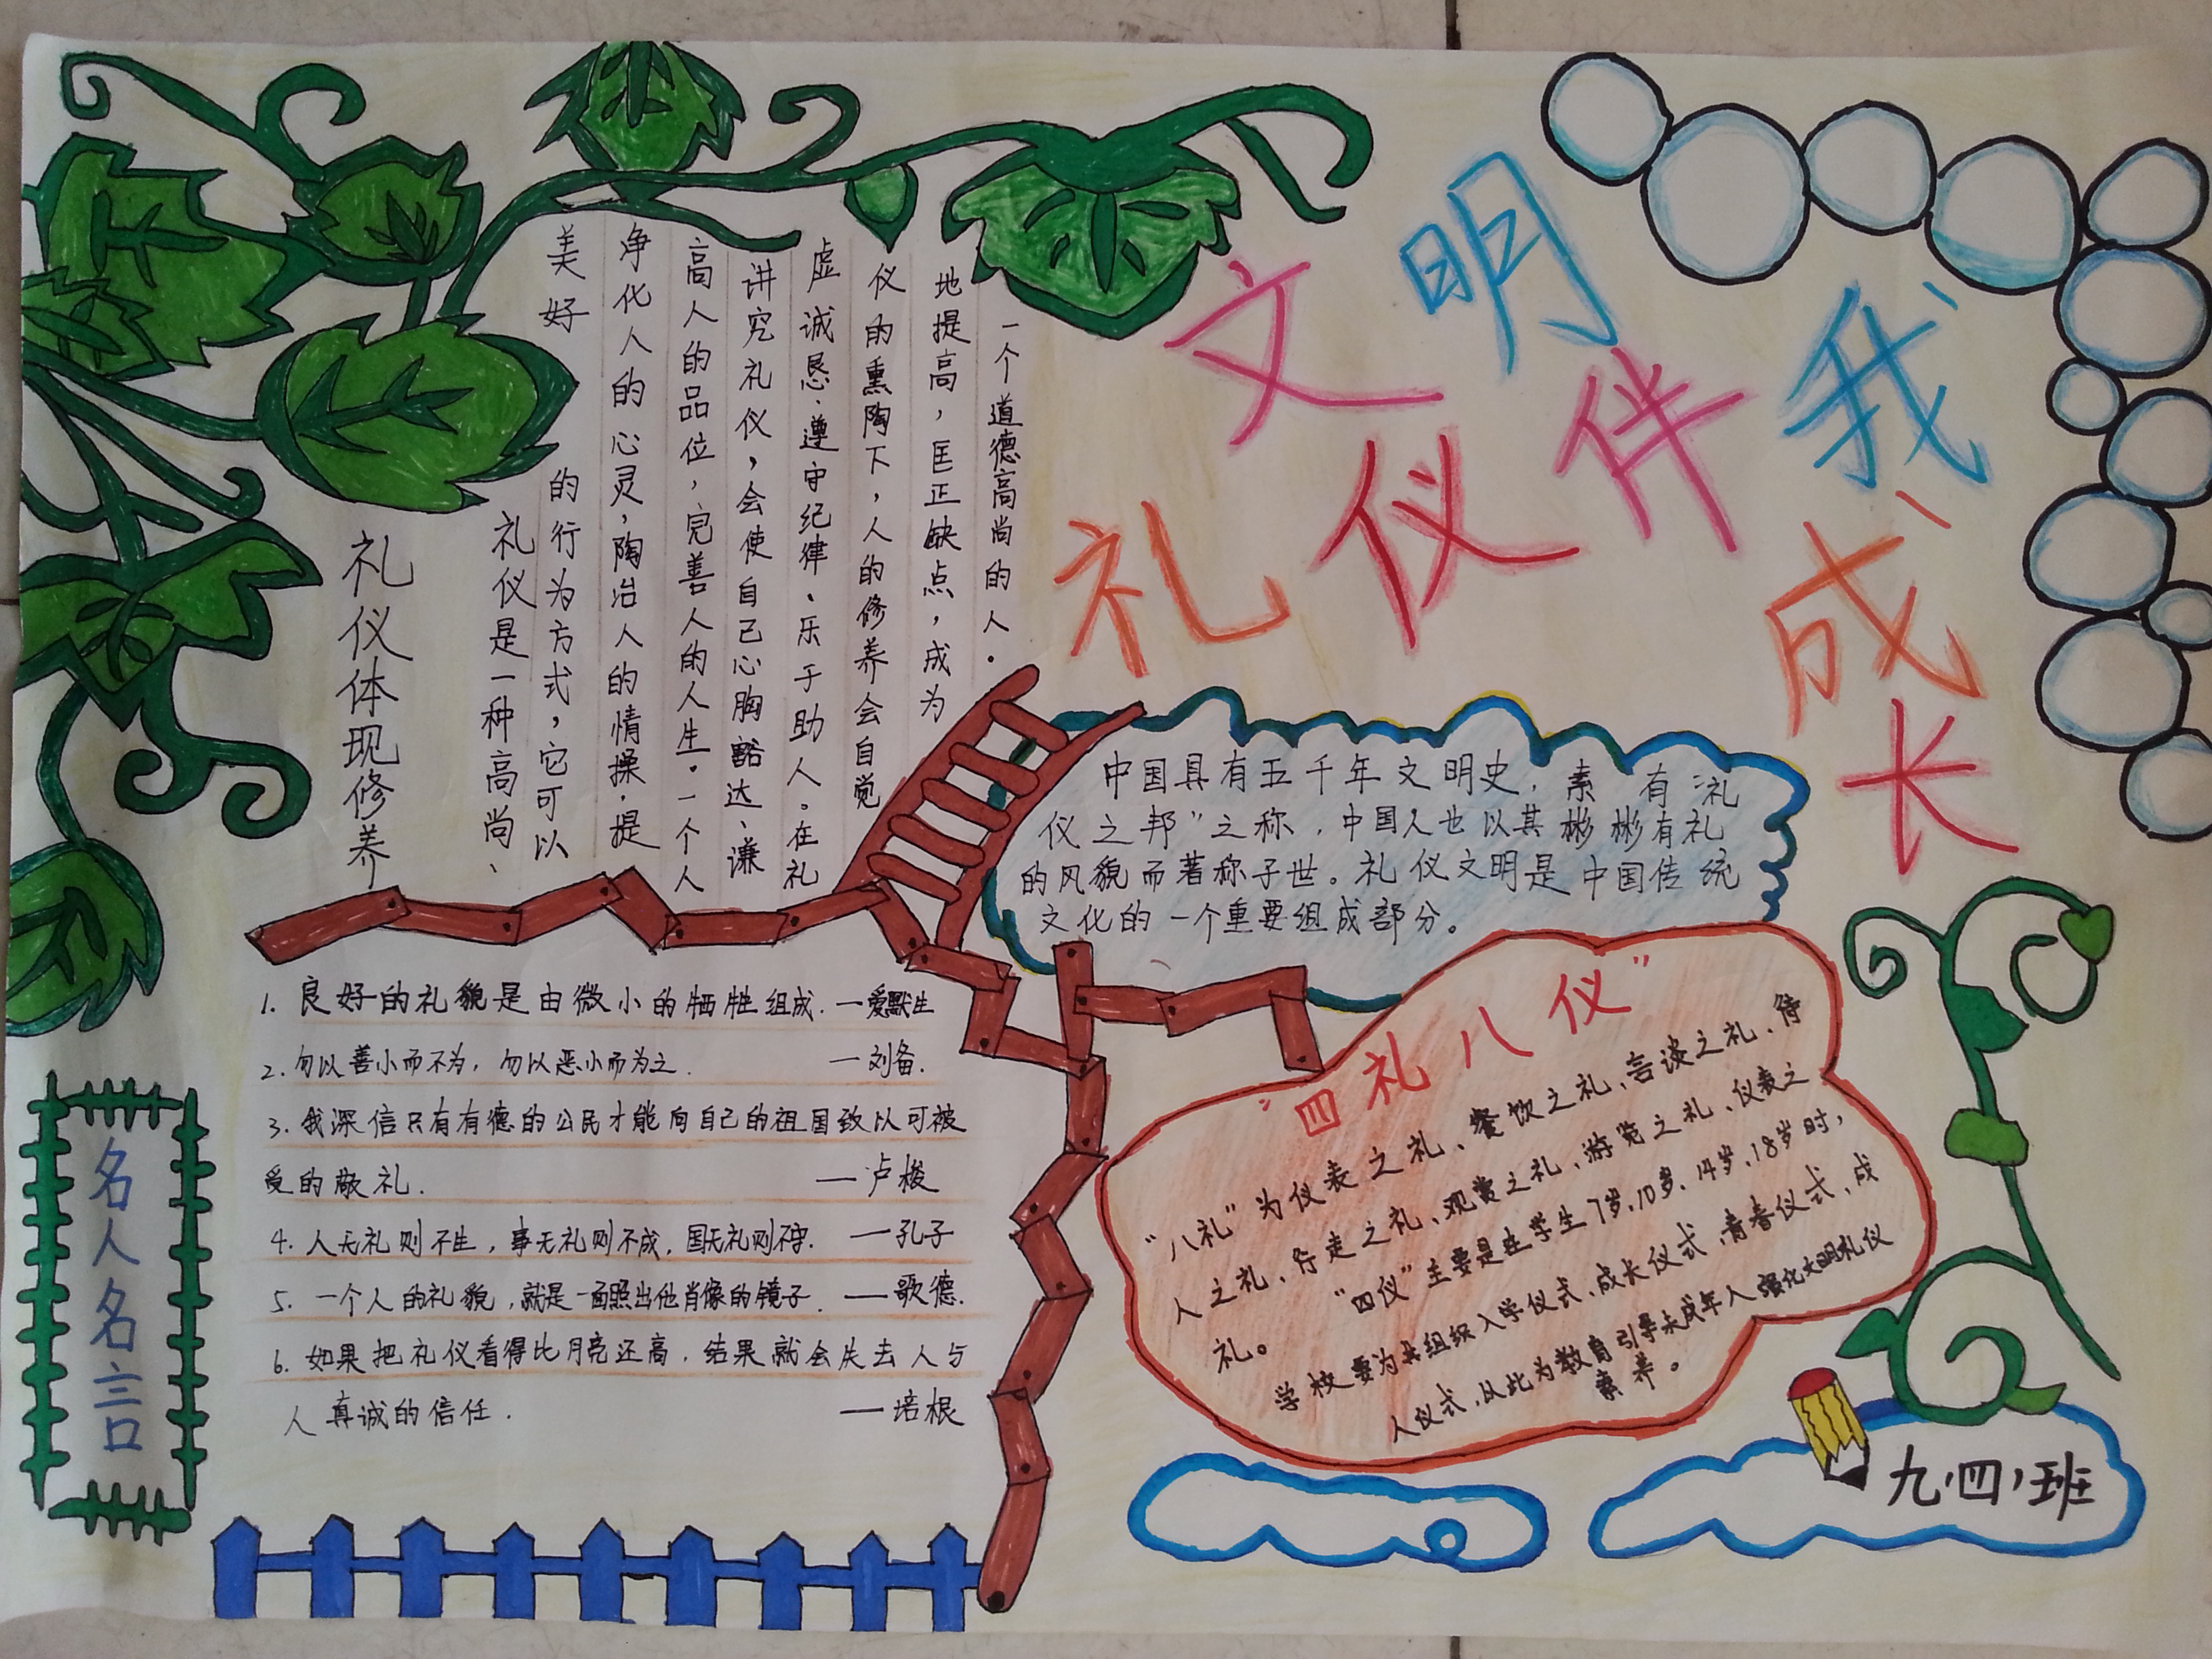 文明
礼仪伴我
成长
礼仪体现修养
礼仪是一种高尚、
美好的行为方式，它可以
净化人的心灵，陶冶人的情操，提
高人的品位，完善人的人生。一个人
讲究礼仪，会使自己心胸豁达、谦
虚诚恳、遵守纪律、乐于助人。在礼
仪的熏陶下，人的修养会自觉
地提高，匡正缺点，成为
一个道德高尚的人。
中国具有五千年文明史，素有“礼
仪之邦”之称，中国人也以其彬彬有礼
的风貌而著称于世。礼仪文明是中国传统
文化的一个重要组成部分。
“四礼八仪”
“八礼”为仪表之礼、餐饮之礼、言谈之礼、待
人之礼、行走之礼、观赏之礼、游览之礼、仪表之
礼。“四仪”主要是在学生7岁、10岁、14岁、18岁时，
学校要为其组织入学仪式、成长仪式、青春仪式、成
人仪式，从此为教育引导未成年人强化文明礼仪
素养。
名人名言
1. 良好的礼貌是由微小的牺牲组成. —爱默生
2. 勿以善小而不为，勿以恶小而为之. —刘备.
3. 我深信只有有德的公民才能向自己的祖国致以可被
受的敬礼. ——卢梭
4. 人无礼则不生，事无礼则不成，国无礼则不守. ——孔子
5. 一个人的礼貌，就是一面照出他肖像的镜子. ——歌德.
6. 如果把礼仪看得比月亮还高，结果就会失去人与
人真诚的信任. ——培根
九、四、班